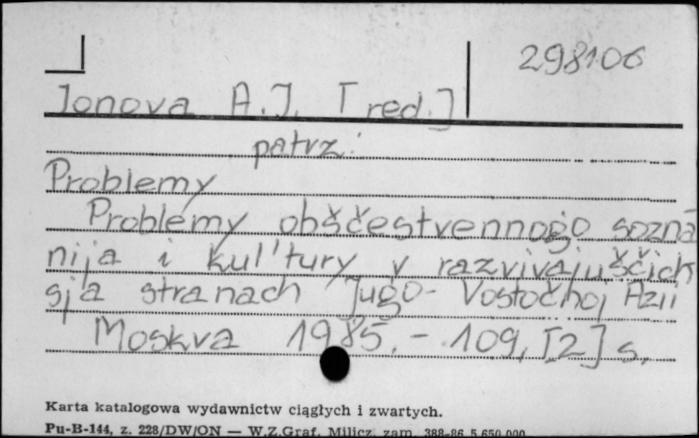 298106
Jonova A.J. [red.]
patrz:
Problemy
Problemy obščestvennogo sozna
nija i kul'tury v razvivajuščich
sja stranach Jugo-Vostočnoj Azii
Moskva 1985. - 109, [2] s.
Karta katalogowa wydawnictw ciągłych i zwartych.
Pu-B-144, z. 228/DW/ON — W.Z.Graf. Milicz, zam. 388-86 5.650.000